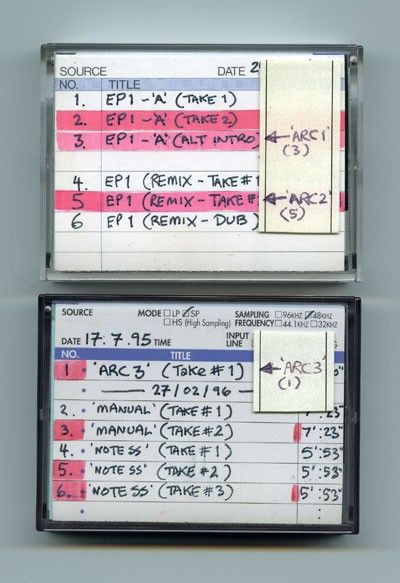 SOURCE DATE 2
NO. TITLE
1. EP1 - 'A' (TAKE 1)
2. EP1 - 'A' (TAKE 2)
3. EP1 - 'A' (ALT INTRO) ← 'ARC1' (3)
4. EP1 (REMIX - TAKE #1
5 EP1 (REMIX - TAKE # ← 'ARC2' (5)
6 EP1 (REMIX - DUB)
SOURCE MODE □LP ☑SP SAMPLING □96KHZ ☑48KHZ
□HS (High Sampling) FREQUENCY □44.1KHZ □32KHZ
DATE 17.7.95 TIME INPUT LINE
NO. TITLE
1 'ARC 3' (Take #1) ← 'ARC3' (1)
— 27/02/96 —
2. 'MANUAL' (TAKE #1) 7':23"
3. 'MANUAL' (TAKE #2) 7':23"
4. 'NOTE SS' (TAKE #1) 5':53"
5. 'NOTE SS' (TAKE #2) 5':53"
6. 'NOTE SS' (TAKE #3) 5':53"